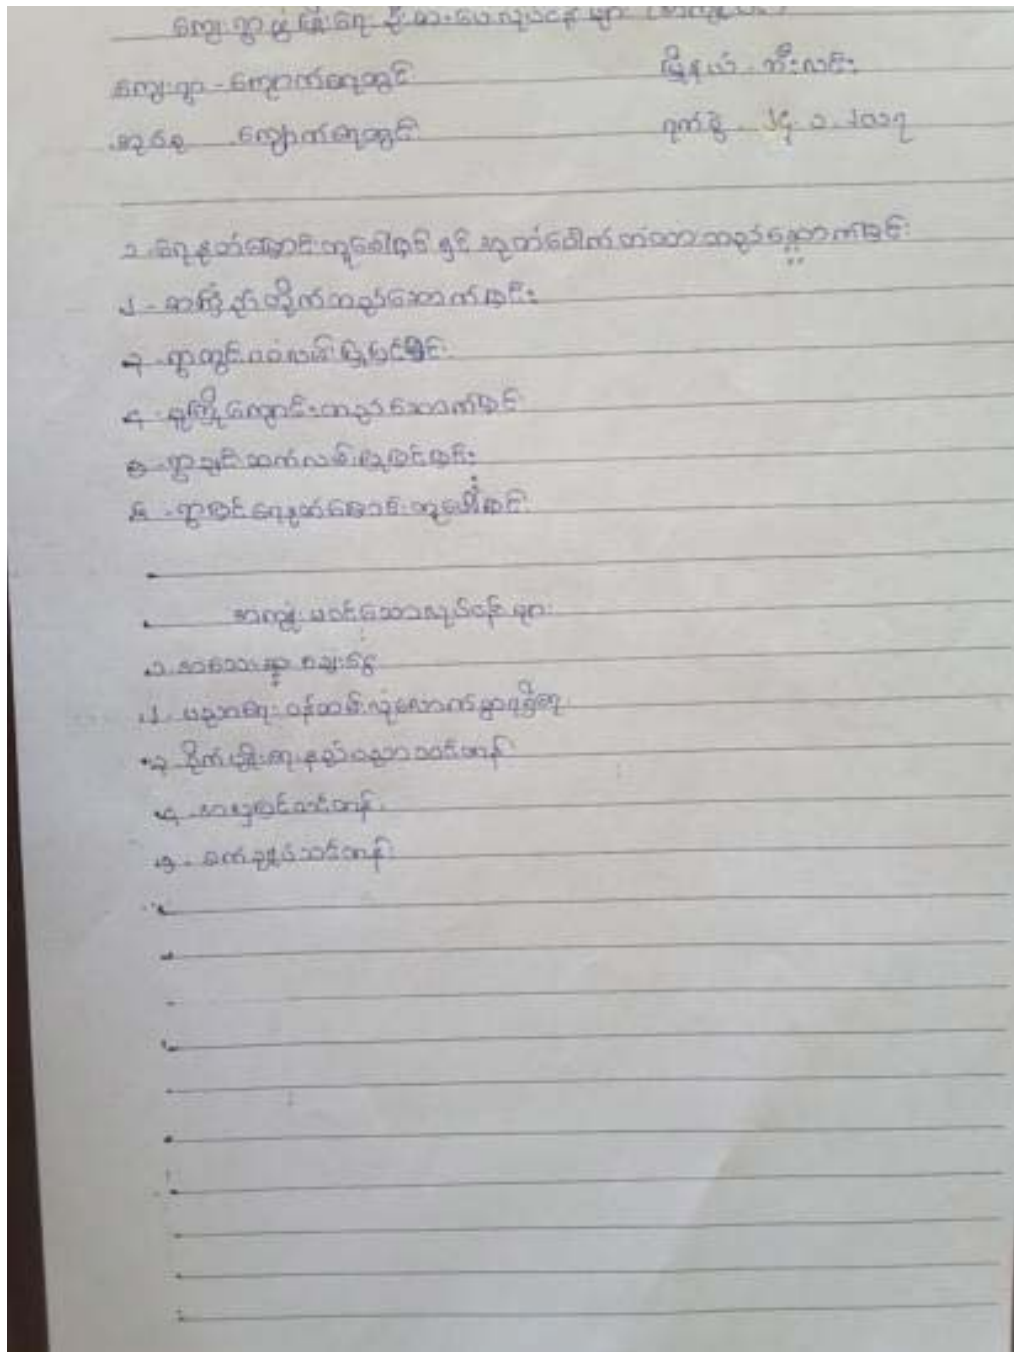 ကျေးရွာဖွံ့ဖြိုးရေး ဦးစားပေးလုပ်ငန်းများ
ကျေးရွာ - ကျောက်ရေတွင်း မြို့နယ် - ဘီးလင်း
အုပ်စု - ကျောက်ရေတွင်း ရက်စွဲ - ၂၄-၁-၂၀၁၇
၁ - ရေနုတ်မြောင်းတူးဖေါ်ခြင်းနှင့် အုတ်ပေါက်တံတားတည်ဆောက်ခြင်း
၂ - စာကြည့်တိုက်တည်ဆောက်ခြင်း
၃ - ရွာတွင်းလမ်းပြုပြင်ခြင်း
၄ - မူကြိုကျောင်းတည်ဆောက်ခြင်း
၅ - ရွာချင်းဆက်လမ်းပြုပြင်ခြင်း
၆ - ရွာပြင်ရေနုတ်မြောင်းတူးဖေါ်ခြင်း
မဝင်သောလုပ်ငန်းများ
၁. အသေးစား ချေးငွေ
၂. ပညာရေးဝန်ထမ်းလုံလောက်စွာရရှိရေး
၃. စိုက်ပျိုးရေးနည်းပညာသင်တန်း
၄. အလှပြင်သင်တန်း
၅. စက်ချုပ်သင်တန်း